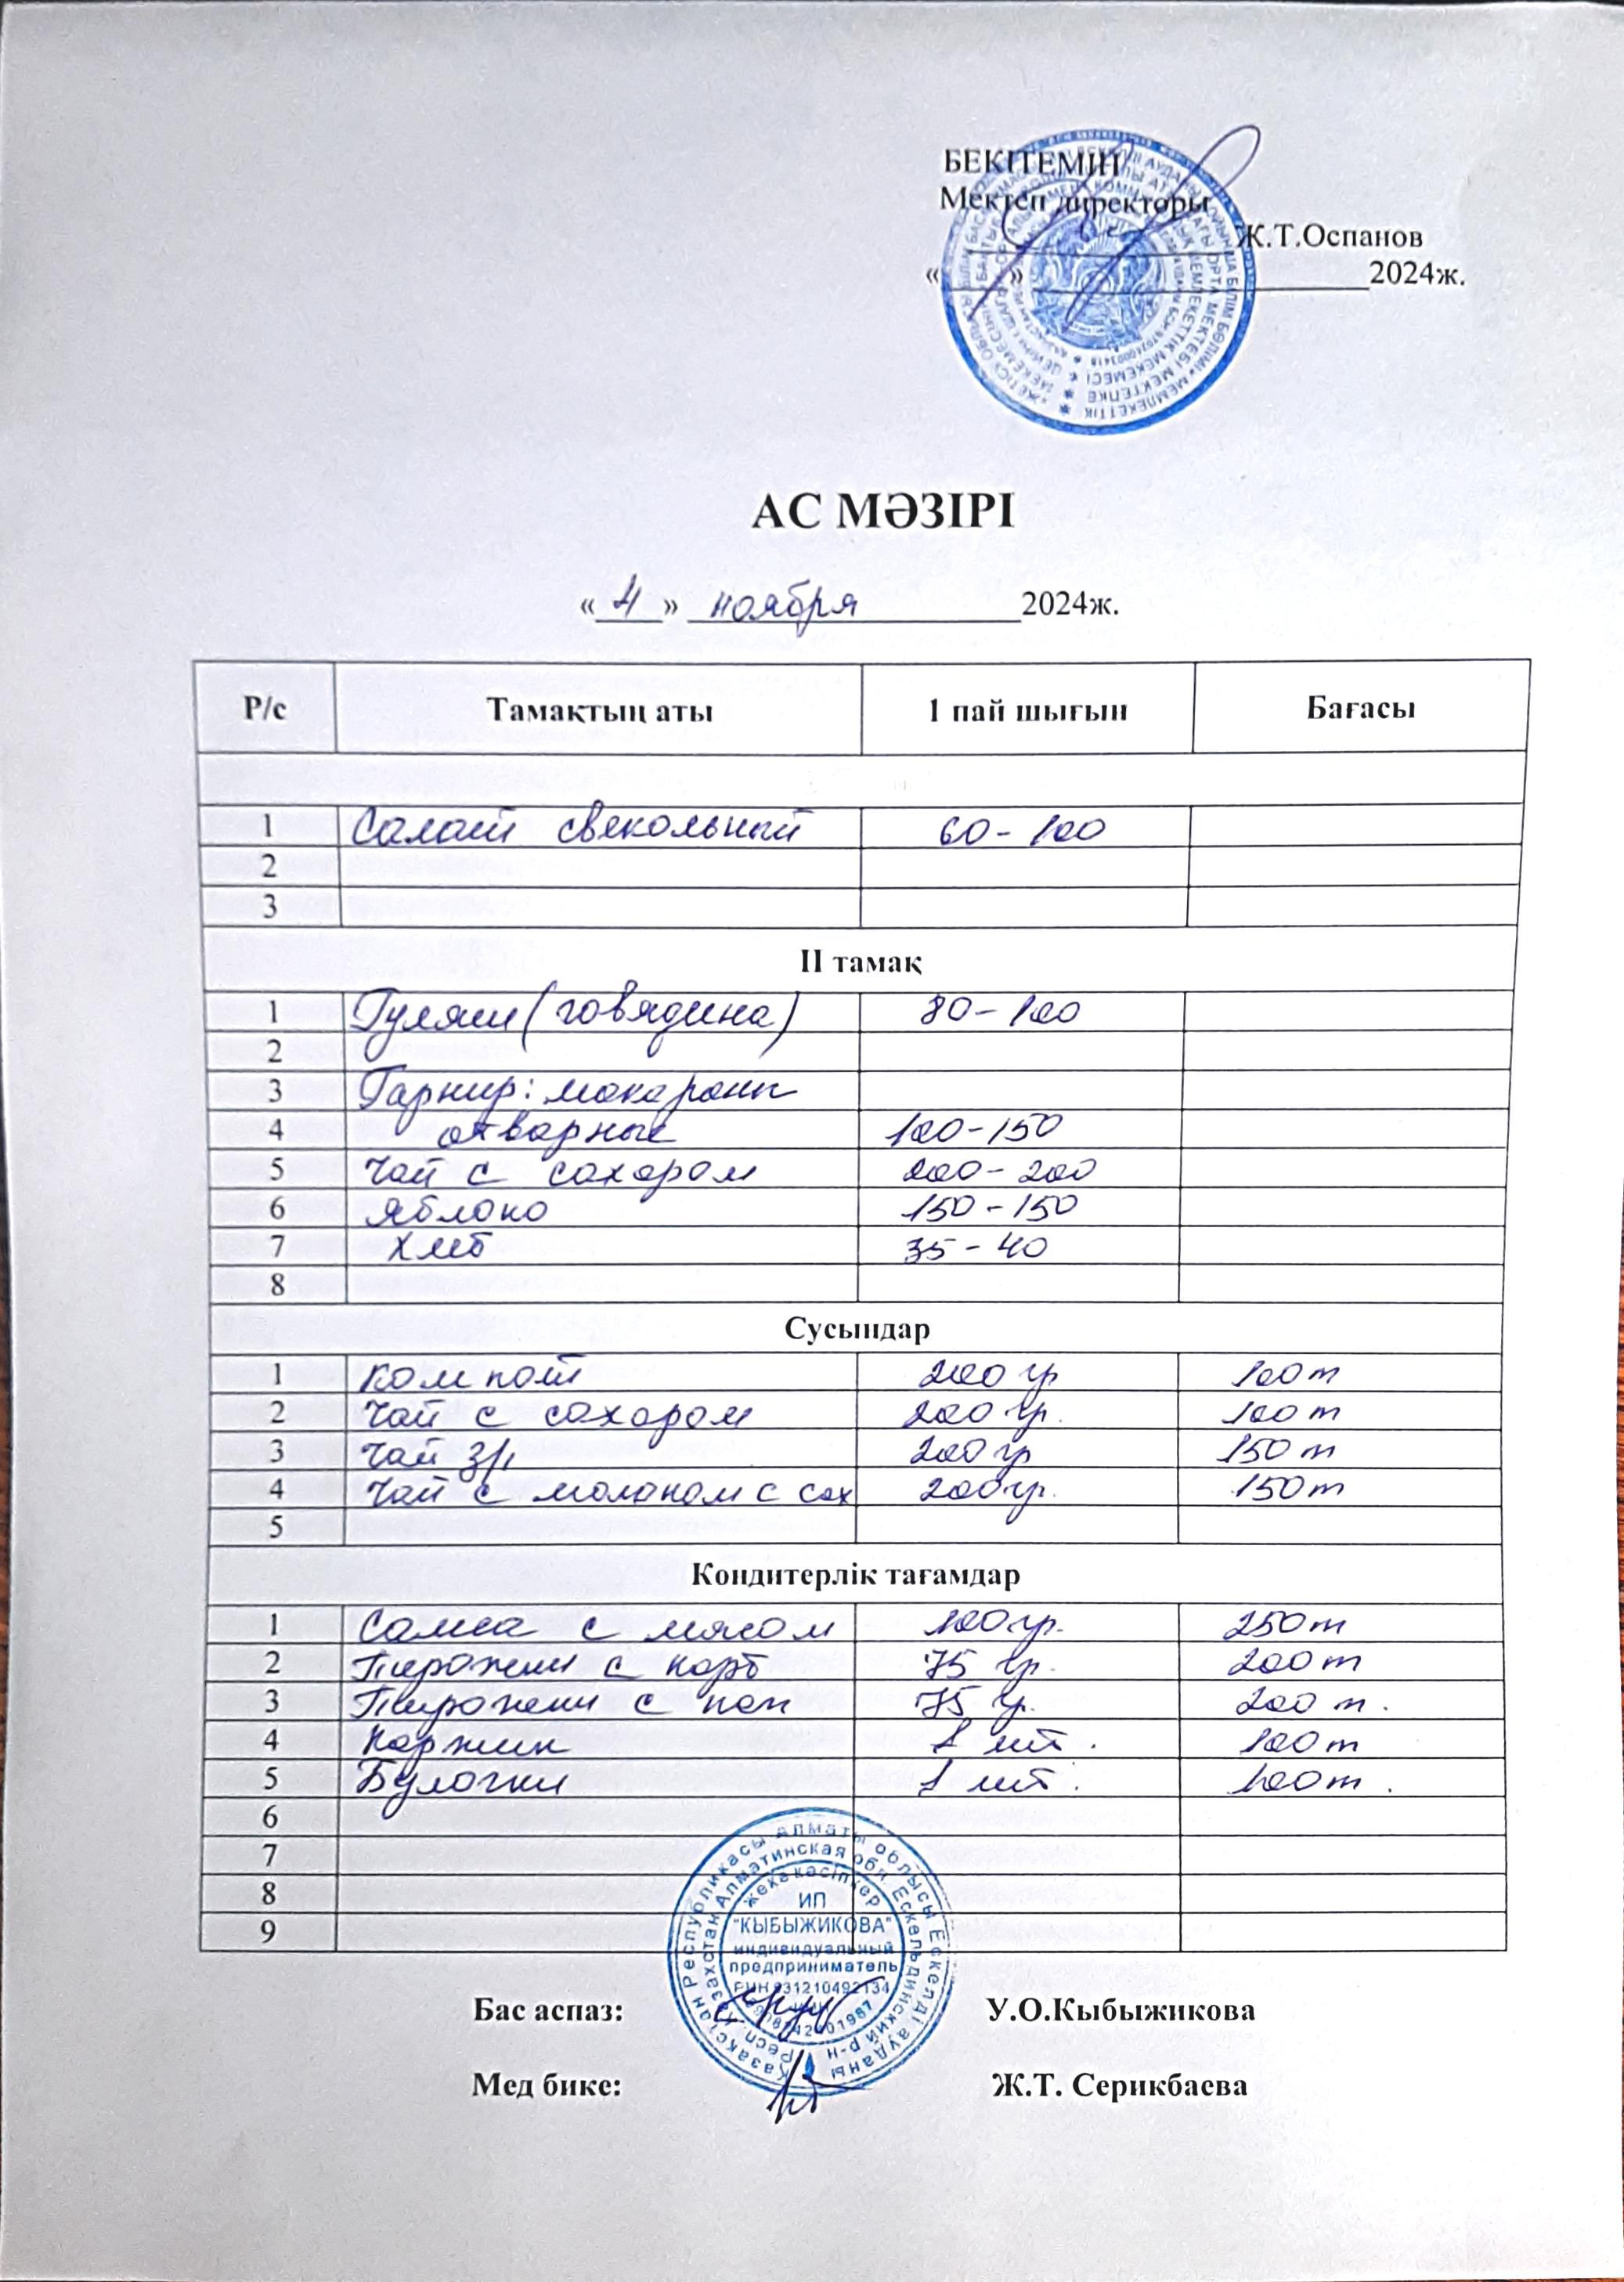 БЕКІТЕМІН
Мектеп директоры
Ж.Т.Оспанов
« » 2024ж.
АС МӘЗІРІ
« 4 » ноября 2024ж.
Р/с Тамақтың аты 1 пай шығын Бағасы
1 Салат свекольный 60-100
2
3
ІІ тамақ
1 Гуляш (говядина) 80-100
2
3 Гарнир: макароны
4 отварные 100-150
5 Чай с сахаром 200-200
6 Яблоко 150-150
7 Хлеб 35-40
8
Сусындар
1 Компот 200 гр 100 т
2 Чай с сахаром 200 гр. 100 т
3 Чай 200 гр 150 т
4 Чай с молоком с сах 200 гр. 150 т
5
Кондитерлік тағамдар
1 Самса с мясом 100 гр. 250 т
2 Пирожки с карт 75 гр. 200 т
3 Пирожки с 75 гр. 200 т.
4 Коржик 1 шт. 100 т
5 Булочки 1 шт. 100 т.
6
7
8
9
Қазақстан Республикасы Алматы облысы Ескелді ауданы
Респ. Казахстан Алматинская обл. Ескельдинский р-н
жеке кәсіпкер
ИП
"КЫБЫЖИКОВА"
индивидуальный
предприниматель
Бас аспаз: У.О.Кыбыжикова
Мед бике: Ж.Т. Серикбаева